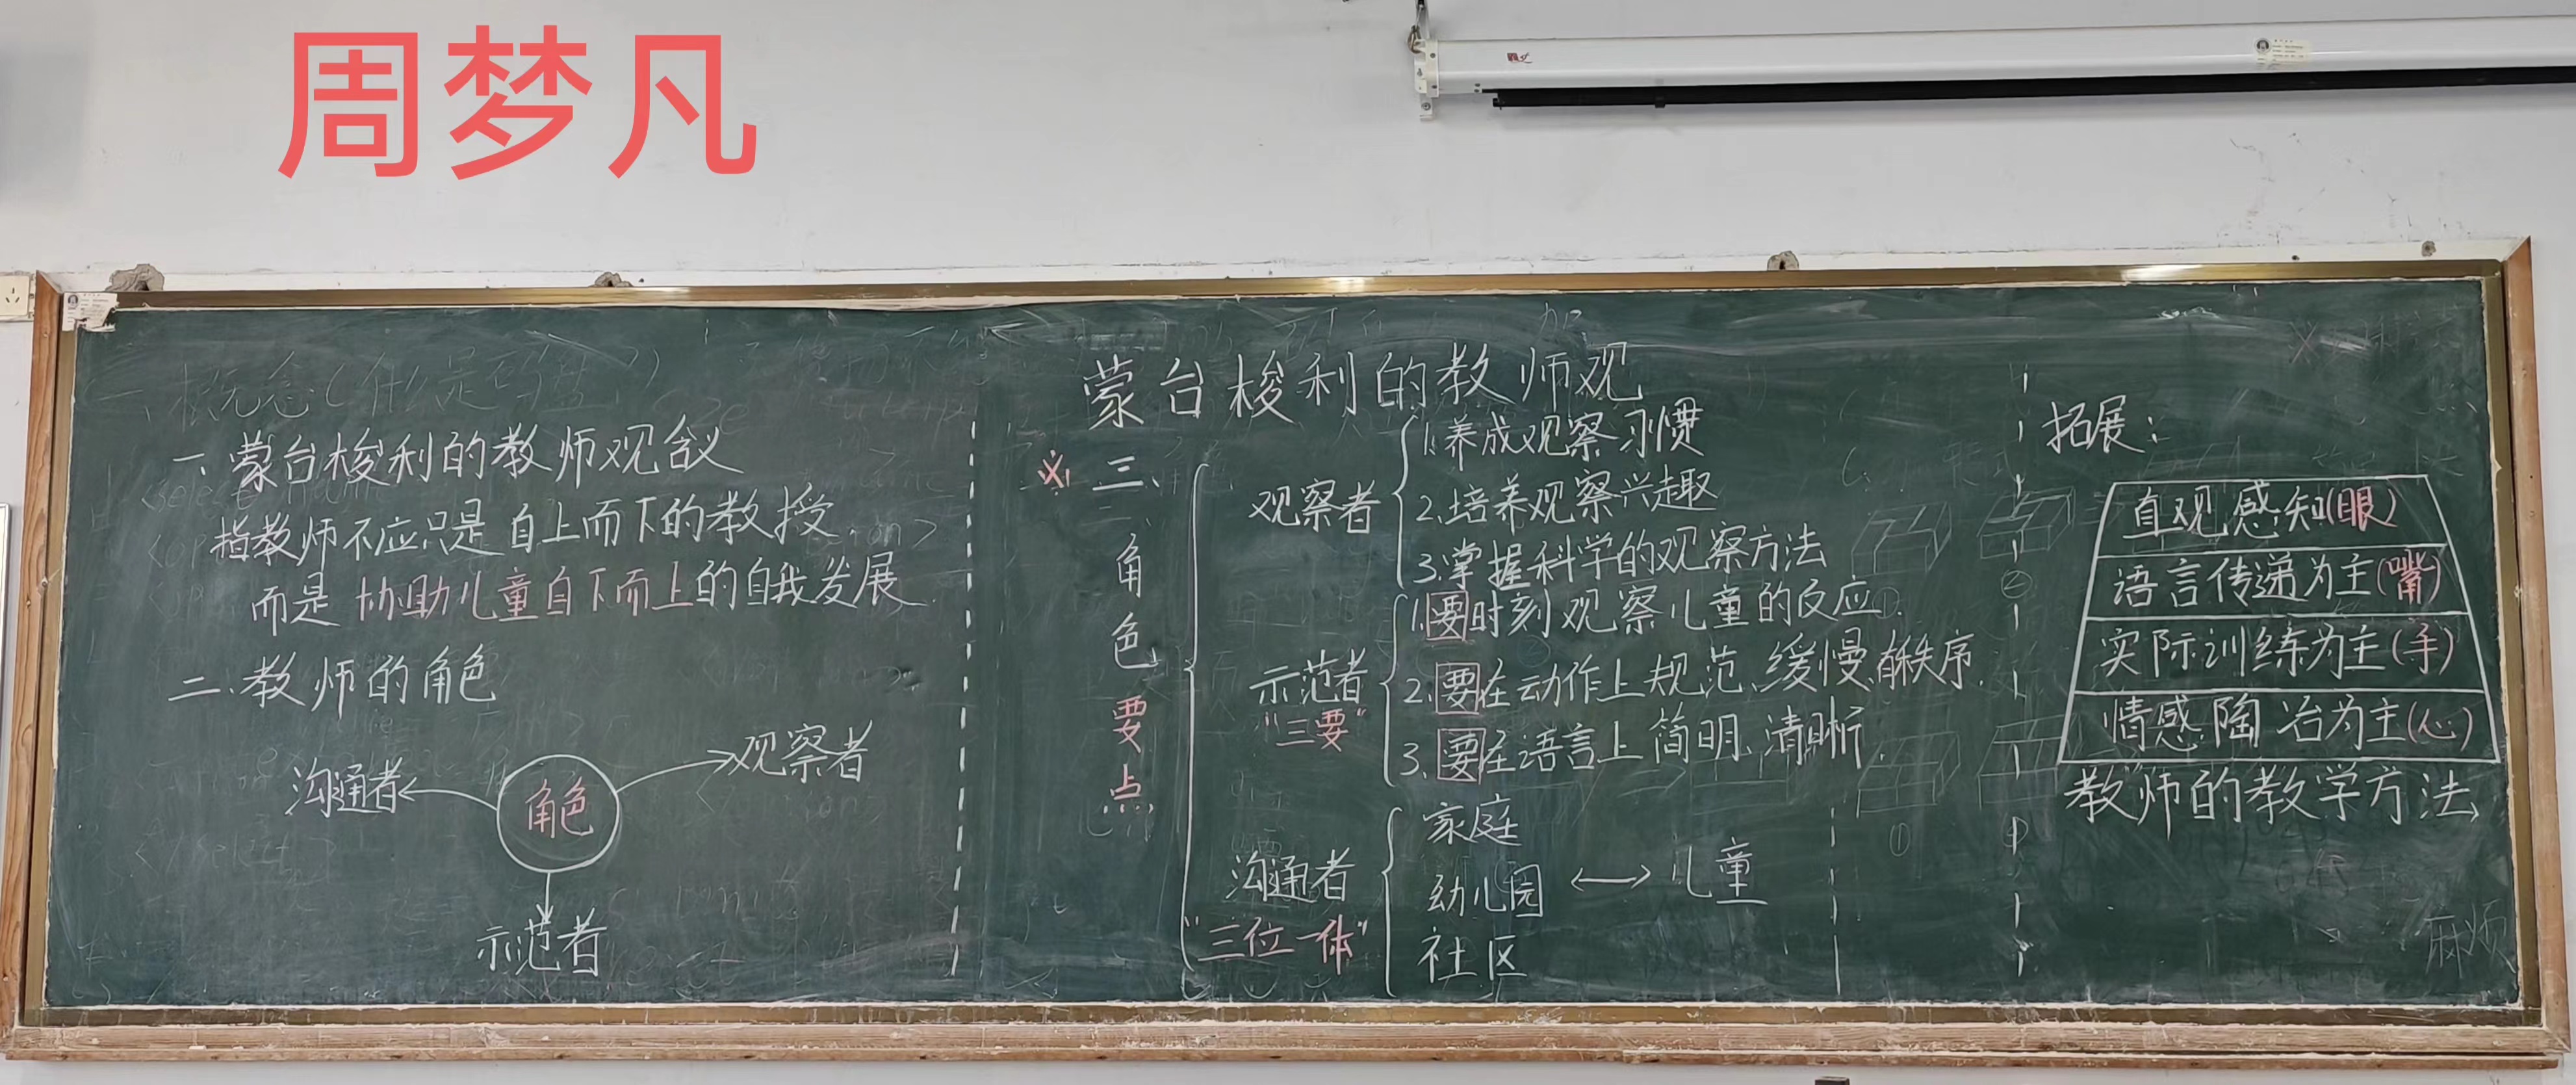 周梦凡
蒙台梭利的教师观
一、蒙台梭利的教师观含义
指教师不应只是自上而下的教授
而是协助儿童自下而上的自我发展
二、教师的角色
角色
沟通者
观察者
示范者
※三、角色要点
观察者
1.养成观察习惯
2.培养观察兴趣
3.掌握科学的观察方法
示范者
"三要"
1.要时刻观察儿童的反应.
2.要在动作上规范、缓慢、有秩序.
3.要在语言上简明、清晰.
沟通者
"三位一体"
家庭
幼儿园 ⟷ 儿童
社区
拓展：
直观感知(眼)
语言传递为主(嘴)
实际训练为主(手)
情感陶冶为主(心)
教师的教学方法
麻烦